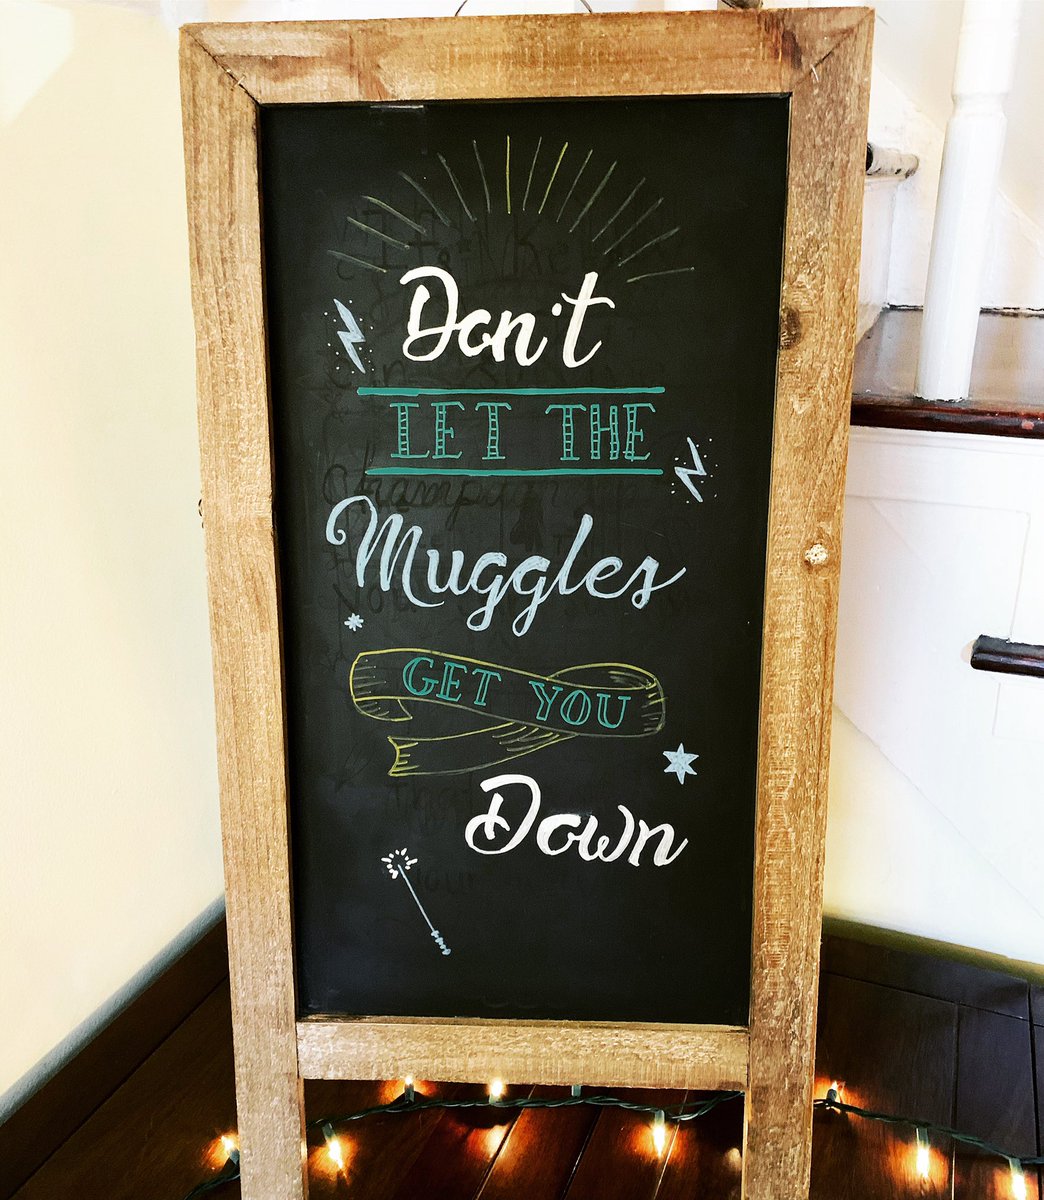 Don't
LET THE
Muggles
GET YOU
Down